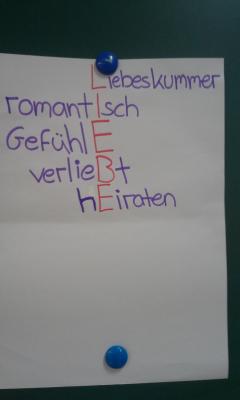 LiebeskummER
romantIsch
GefühlE
verlieBt
hEiraten